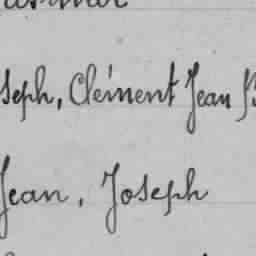 seph, Clément Jean
Jean, Joseph